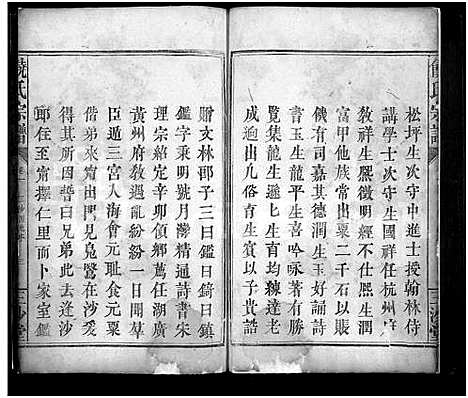 饒氏宗譜
松坪生次守中進士授翰林侍
講學士次守生國祥任杭州府
教祥生熙徵明經不仕熙生潤
富甲他族常出粟二千石以賑
饑有司嘉其德潤生玉好誦詩
書玉生龍平生尚吟詠著有勝
覽集龍生遜匕生育均練達老
成迨匕几俗育生賓以子貴誥
贈文林郎子三曰鑑曰錡曰鎮
鑑字秉明號月灣精通詩書宋
理宗紹定辛卯領鄉薦任湖廣
黃州府敎遇亂紛紛一日聞草
臣遁三宮入海會元耻食元粟
偕弟來甯出門見鳧鷖在沙爰
得其所因誓曰兄弟此去逢沙
即住至甯擇仁里而卜家室鑑
饒氏宗譜